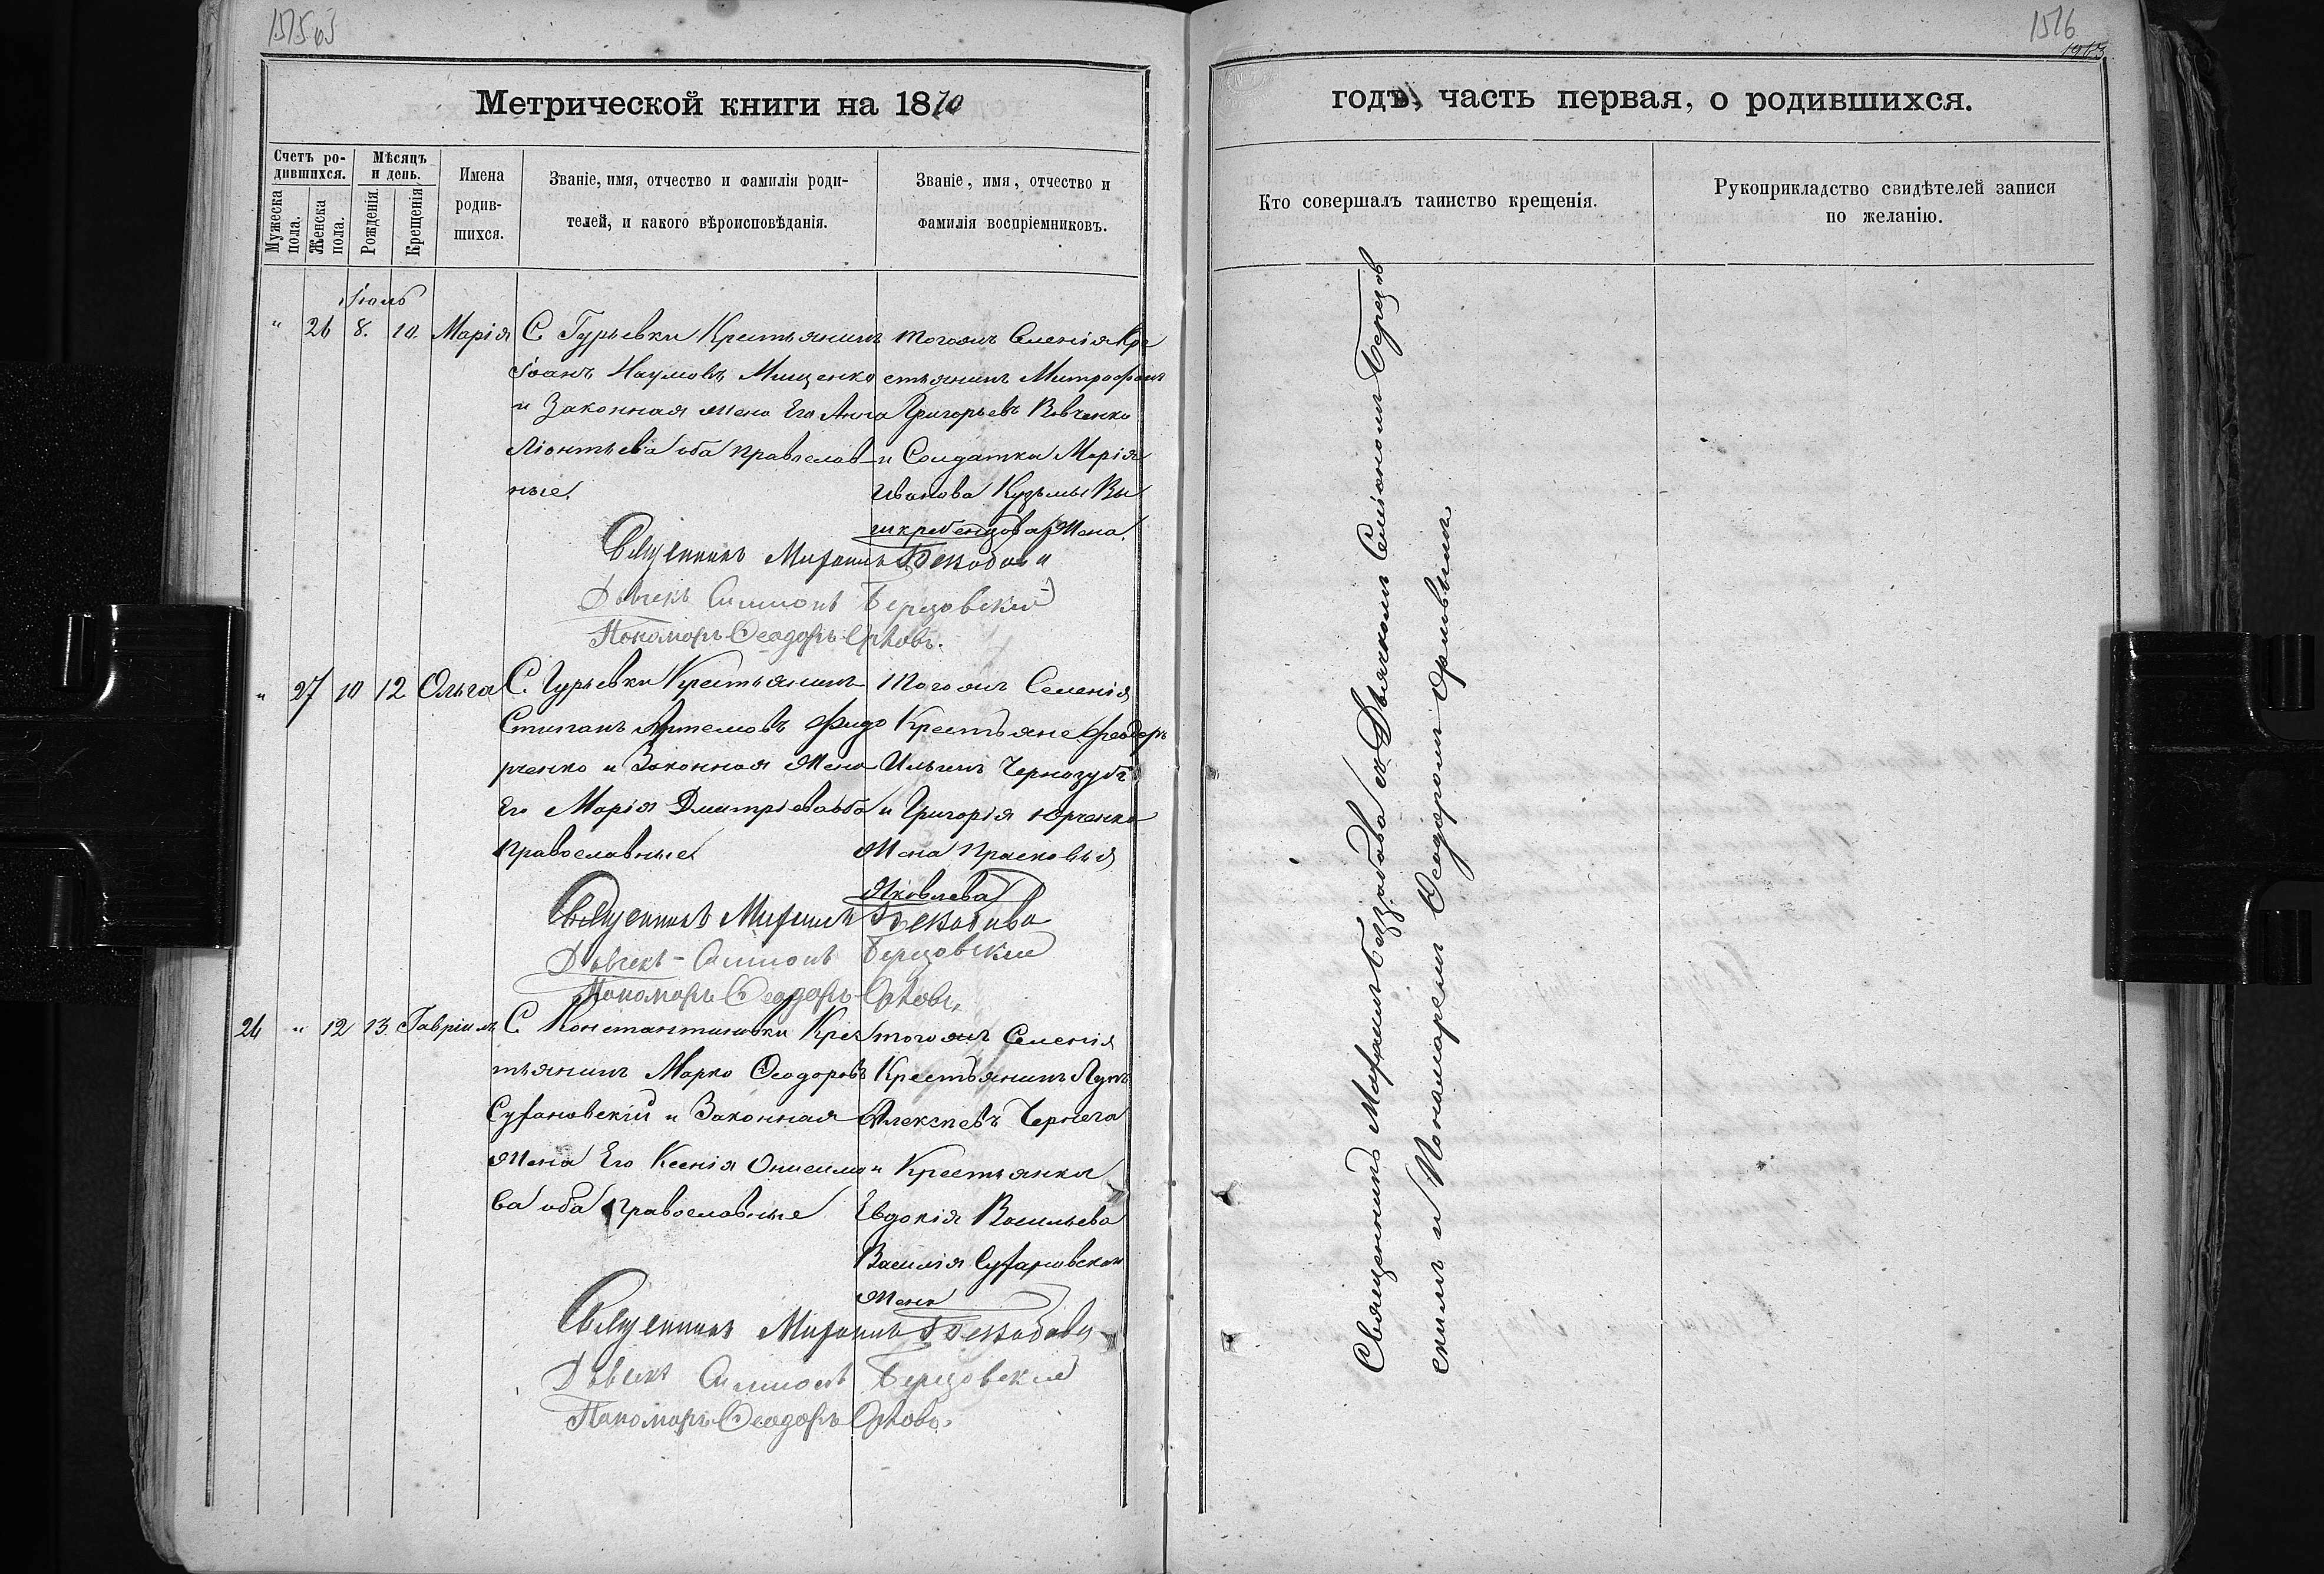 1575
Метрической книги на 1870
Счетъ родившихся.
Мѣсяцъ и день.
Мужеска пола.
Женска пола.
Рожденія.
Крещенія.
Имена родившихся.
Званіе, имя, отчество и фамилія родителей, и какого вѣроисповѣданія.
Званіе, имя, отчество и фамилія воспріемниковъ.
Іюль
" 26 8. 10. Марія
С Гурьевки Крестьянинъ
Іоанъ Наумовъ Мищенко
и Законная жена Его Анна
Ліонтьева оба православ-
ные.
тогожъ Селенія Кре
стьянинъ Митрофанъ
Григорьевъ Вовченко
и Солдатка Марія
Иванова Кузьмы Вы
жена.
Священникъ Михаилъ
Дьячекъ Симионъ Березовскій
Пономарь Феодоръ Орловъ.
" 27 10 12 Ольга
С. Гурьевки Крестьянинъ
Стипанъ Артемовъ Федо
рченко и Законная жена
Его Марія Дмитріева оба
православные.
тогожъ Селенія
Крестьяне Феодоръ
Ильинъ Чернозубъ
и Григорія Юрченка
жена Прасковья
Яковлева
Священникъ Михаилъ
Дьячекъ Симионъ Березовскій
Пономарь Феодоръ Орловъ,
26 " 12 13. Гавріилъ
С Константиновки Крес
тьянинъ Марко Феодоровъ
Сухановскій и Законная
жена Его Ксенія Онисимо
ва оба православные
тогожъ Селенія
Крестьянинъ Лупъ
Алексѣевъ Чернега
и Крестьянка
Евдокія Васильева
Василія Сухановскаго
жена
Священникъ Михаилъ
Дьячекъ Симионъ Березовскій
Пономарь Феодоръ Орловъ.
1516
годъ, часть первая, о родившихся.
Кто совершалъ таинство крещенія.
Рукоприкладство свидѣтелей записи по желанію.
Священникъ Михаилъ съ Дьячкомъ Симіономъ Березов
скимъ и Пономаремъ Феодоромъ Орловымъ